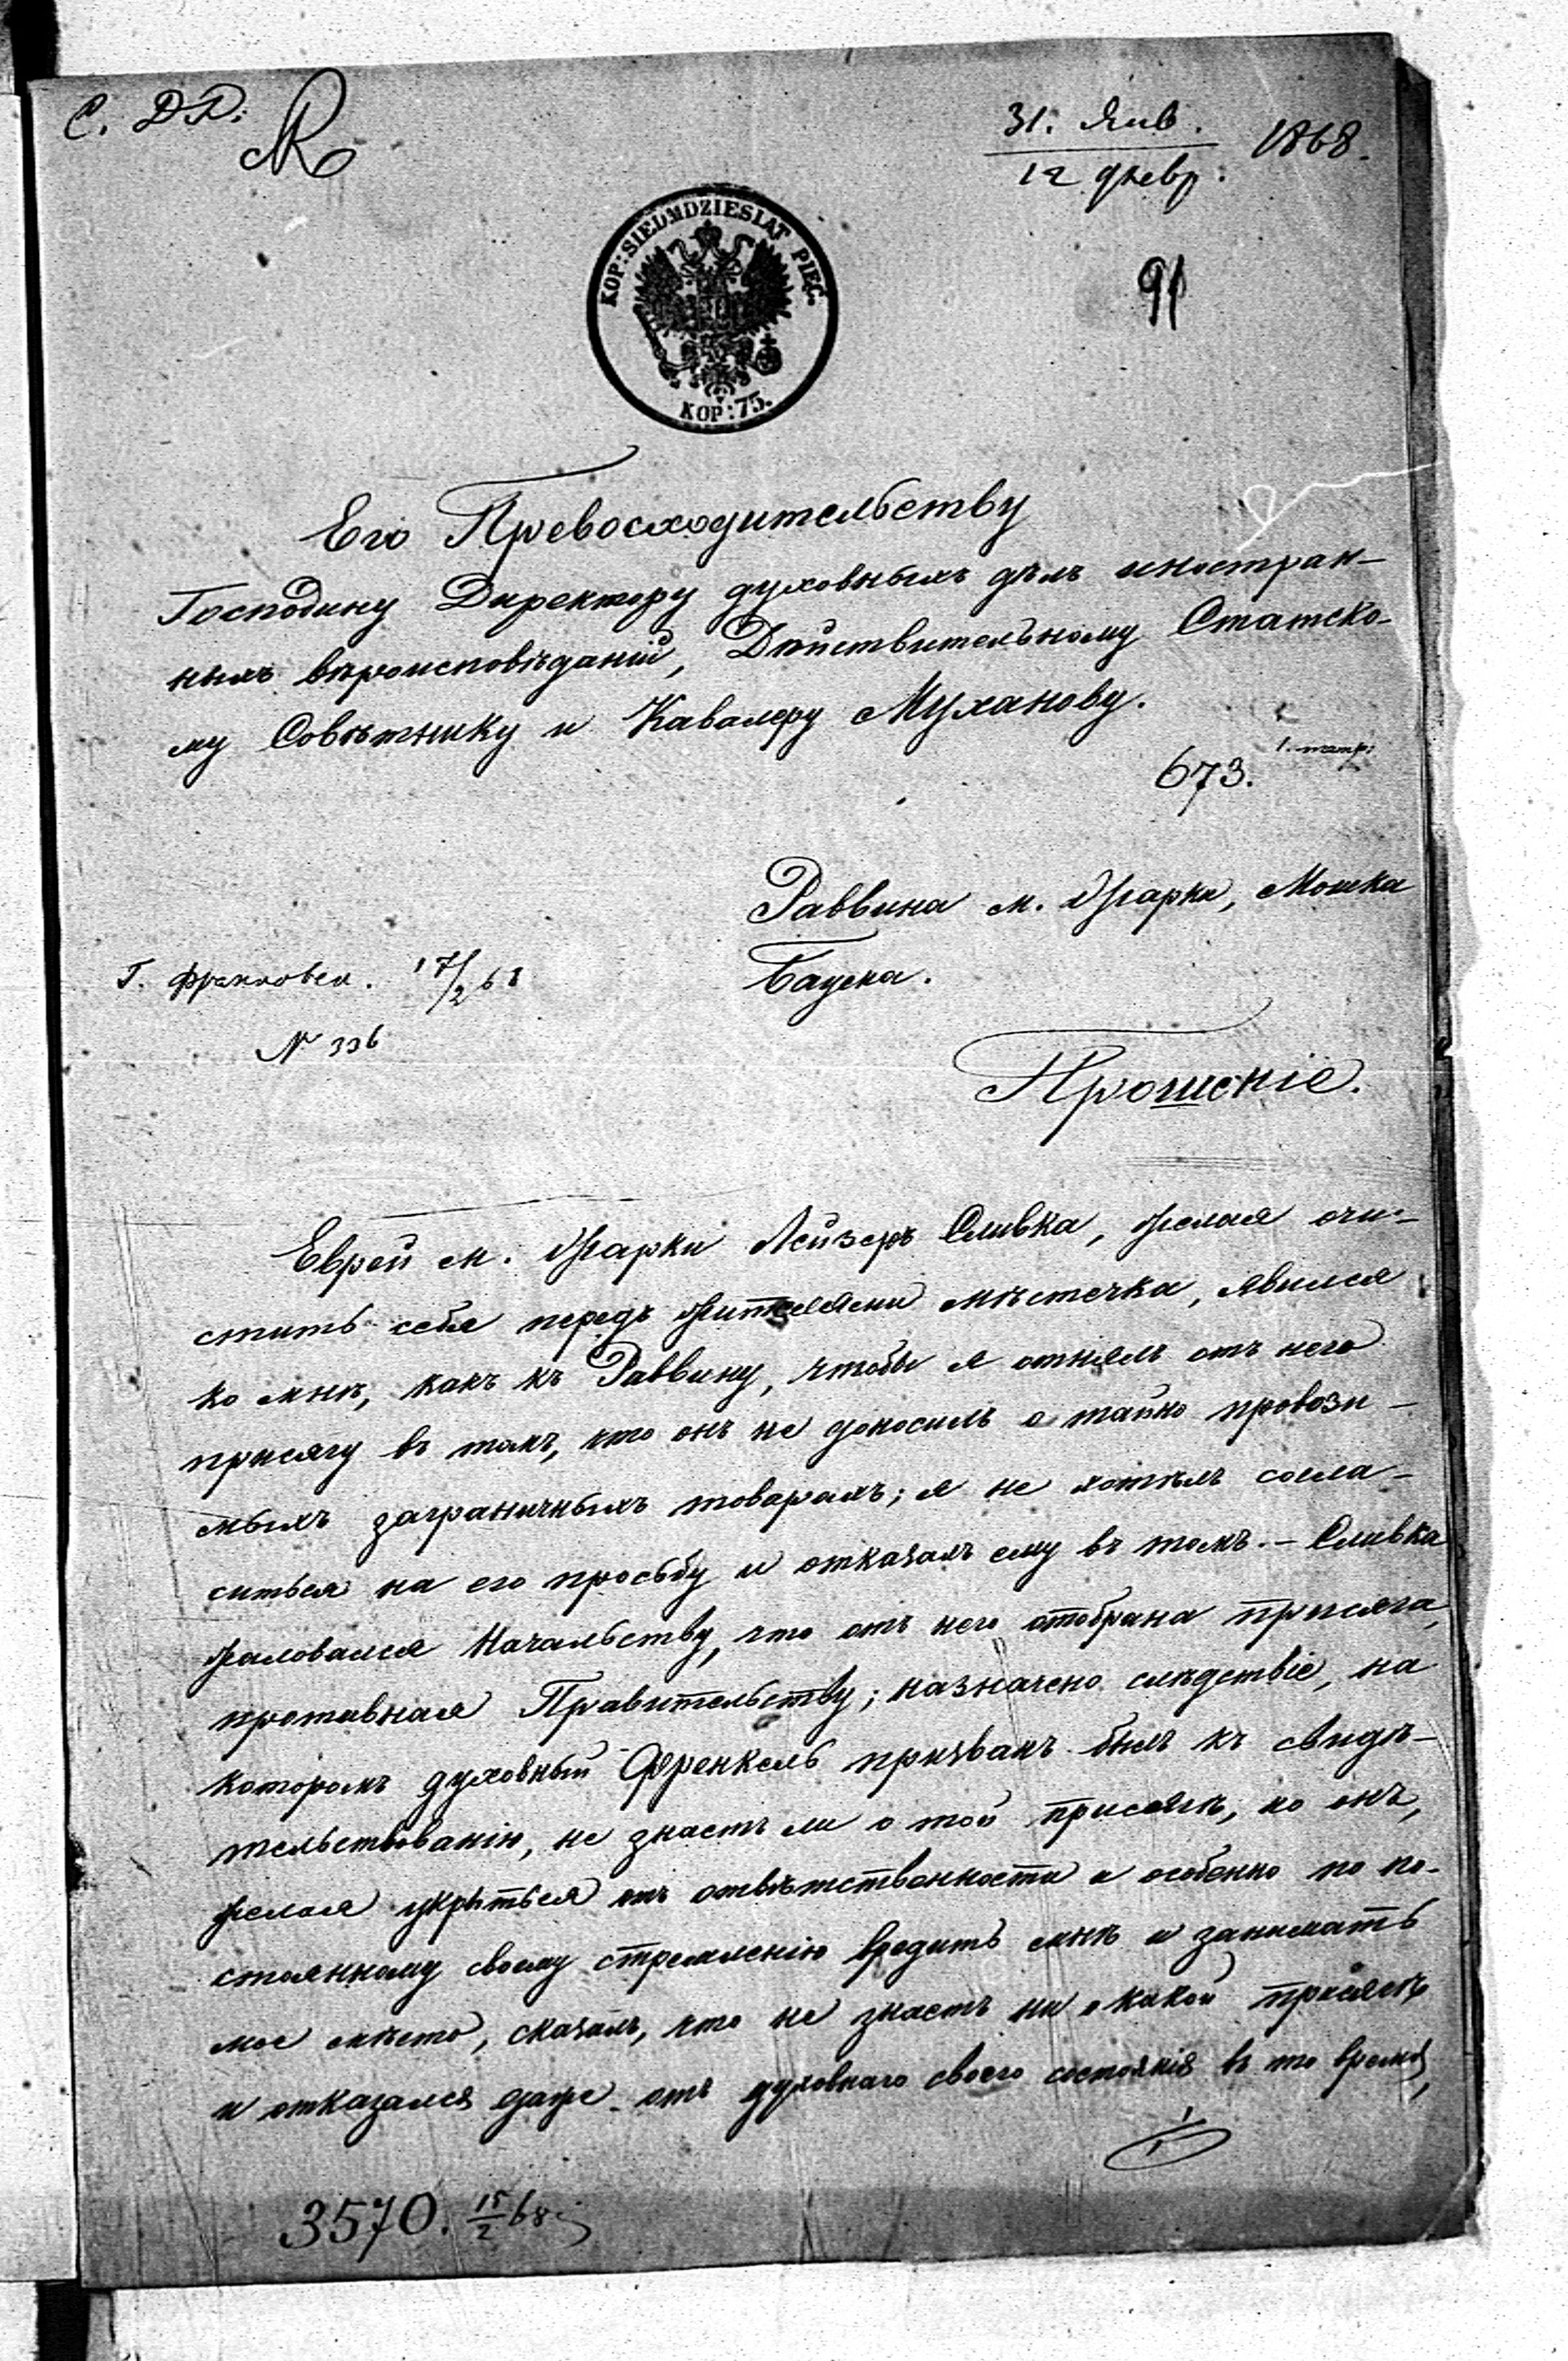 С. Д. Д.
31. Янв. 1868.
12 февр.
91
KOP: SIEDMDZIESIAT PIĘC.
KOP: 75.
Его Превосходительству
Господину Директору духовныхъ дѣлъ иностран-
ныхъ вѣроисповѣданій, Дѣйствительному Статско-
му Совѣтнику и Кавалеру Муханову.
673.
Раввина м. Жарки, Мошка
Г. 17/2 68
N 336
Прошеніе.
Еврей м. Жарки Лейзеръ Сливка, желая очи-
стить себя передъ жителями мѣстечка, явился
ко мнѣ, какъ къ Раввину, чтобы я отнялъ отъ него
присягу въ томъ, что онъ не доносилъ о тайно провози-
мыхъ заграничныхъ товарахъ; я не хотѣлъ согла-
ситься на его просьбу и отказалъ ему въ томъ. - Сливка
жаловался Начальству, что отъ него отобрана присяга,
противная Правительству; назначено слѣдствіе, на
которомъ духовный Френкель призванъ былъ къ свидѣ-
тельствованію, не знаетъ ли о той присягѣ, но онъ,
желая укрыться отъ отвѣтственности и особенно по по-
стоянному своему стремленію вредить мнѣ и занимать
мое мѣсто, сказалъ, что не знаетъ ни о какой присягѣ
и отказался даже отъ духовнаго своего состоянія въ то время,
3570. 15/2 68